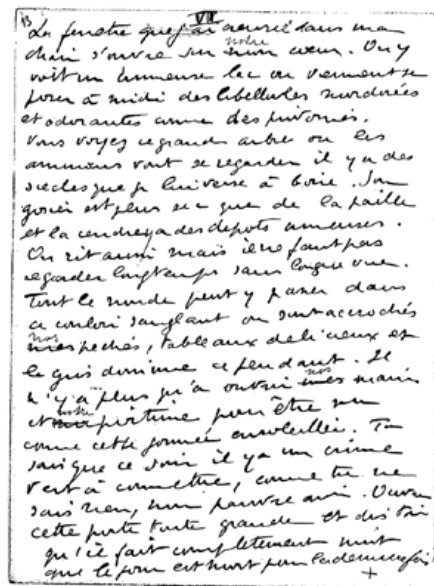 VII
13
La fenêtre que j'ai creusée dans ma
chair s'ouvre sur mon notre cœur. On y
voit un immense lac où viennent se
poser à midi des libellules mordorées
et odorantes comme des pivoines.
Vous voyez ce grand arbre où les
animaux vont se regarder il y a des
siècles que je lui verse à boire. Son
gosier est plus sec que de la paille
et la cendre y a des dépots immenses.
On rit aussi mais il ne faut pas
regarder longtemps sans longue vue.
Tout le monde peut y passer dans
ce couloir sanglant où sont accrochés
mes nos péchés, tableaux délicieux où
le gris domine cependant. Il
n'y a plus qu'à ouvrir mes nos mains
et ma notre poitrine pour être nu
comme cette journée ensoleillée. Tu
sais que ce soir il y a un crime
vert à commettre, comme tu ne
sais rien, mon pauvre ami. Ouvre
cette porte toute grande et dis toi
qu'il fait complètement nuit
que le jour est mort pour la dernière fois